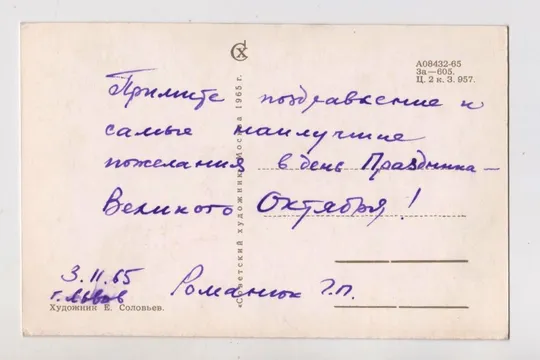 А08432-65
За—605.
Ц. 2 к. З. 957.
Примите поздравление и
самые наилучшие
пожелания в день Праздника —
Великого Октября!
3.11.65
г. Львов
Романюк Г.П.
Художник Е. Соловьев.
«Советский художник» Москва 1965 г.